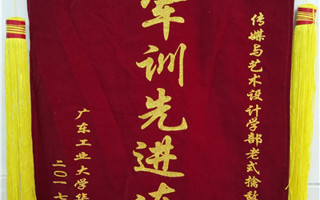 传媒与艺术设计学部老式擒敌
军训先进连
广东工业大学华
二〇一七